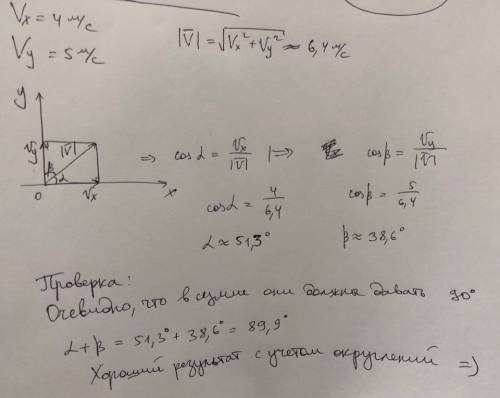 Vx = 4 м/с
Vy = 5 м/с
|V̅| = √(Vx² + Vy²) ≈ 6,4 м/с
y
Vy
|V̅|
β
α
0
Vx
x
=> cos α = Vx/|V̅| |=> cos β = Vy/|V̅|
cos α = 4/6,4
cos β = 5/6,4
α ≈ 51,3°
β ≈ 38,6°
Проверка:
Очевидно, что в сумме они должны давать 90°
α + β = 51,3° + 38,6° = 89,9°
Хороший результат с учетом округлений =)